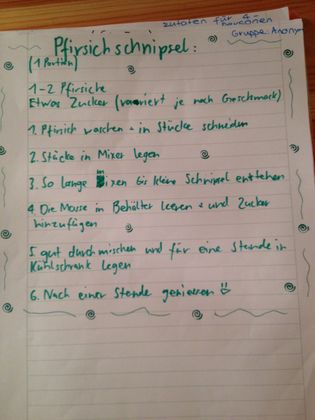 zutaten für 4
Gruppe: Anonym
Pfirsichschnipsel:
(1 Portion)
1-2 Pfirsiche
Etwas Zucker (variiert je nach Geschmack)
1. Pfirsich waschen + in Stücke schneiden
2. Stücke in Mixer legen
3. So lange mixen bis kleine Schnipsel entstehen
4. Die Masse in Behälter leeren + und Zucker
hinzufügen
5. gut durchmischen und für eine Stunde in
Kühlschrank legen
6. Nach einer Stunde geniessen